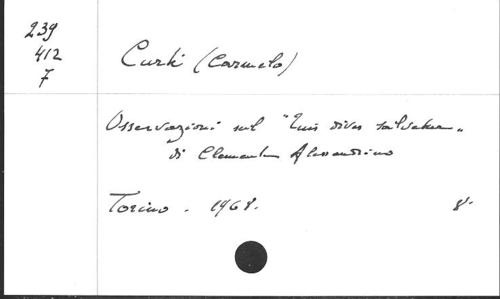 239
412
7
Curti (Carmelo)
Osservazioni sul "Quis dives salvetur"
di Clemente Alessandrino
Torino. 1968. 8°